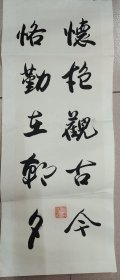 懷抱觀古今
恪勤在朝夕